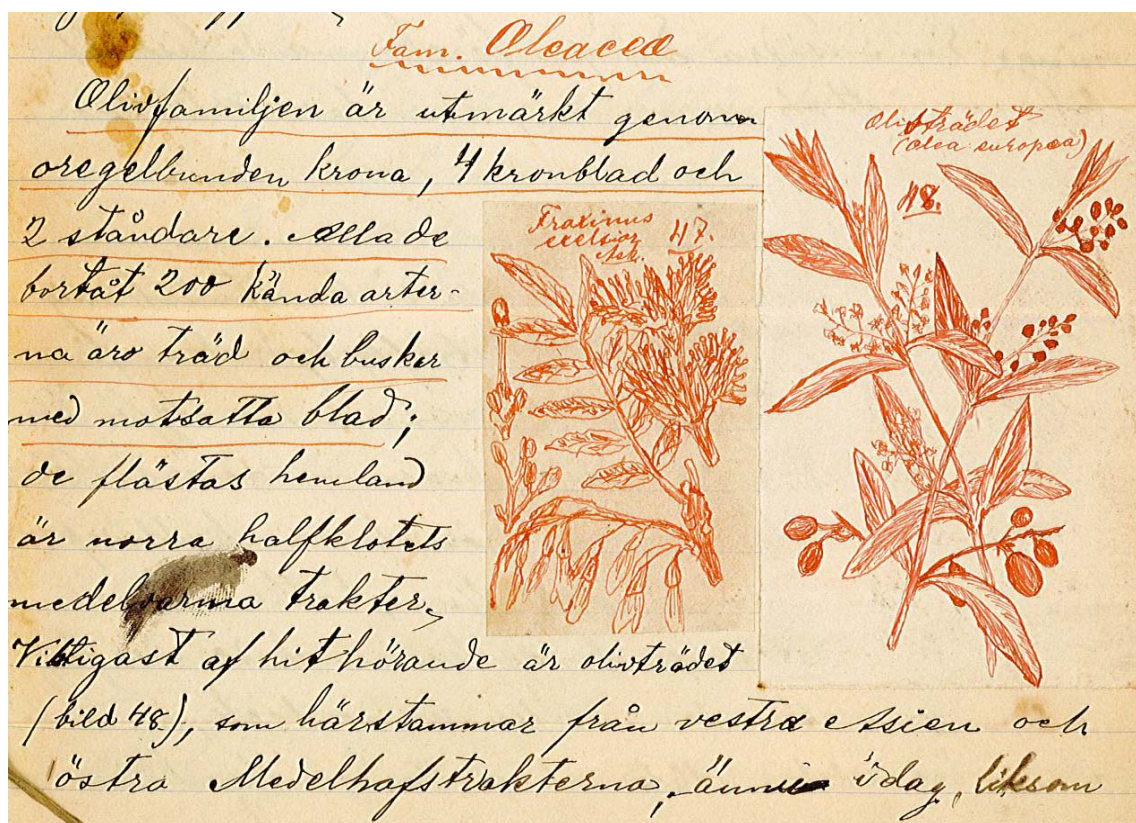 Fam. Oleaceæ
Olivfamiljen är utmärkt genom
oregelbunden krona, 4 kronblad och
2 ståndare. Alla de
bortåt 200 kända arter-
na äro träd och buskar
med motsatta blad;
de flästas hemland
är norra halfklotets
medelvarma trakter,
Viktigast af hithörande är olivträdet
(bild 48), som härstammar från vestra Asien och
östra Medelhafstrakterna, ännu idag, liksom
Fraxinus
excelsior 47.
Ask.
Olivträdet
(Olea europæa)
48.